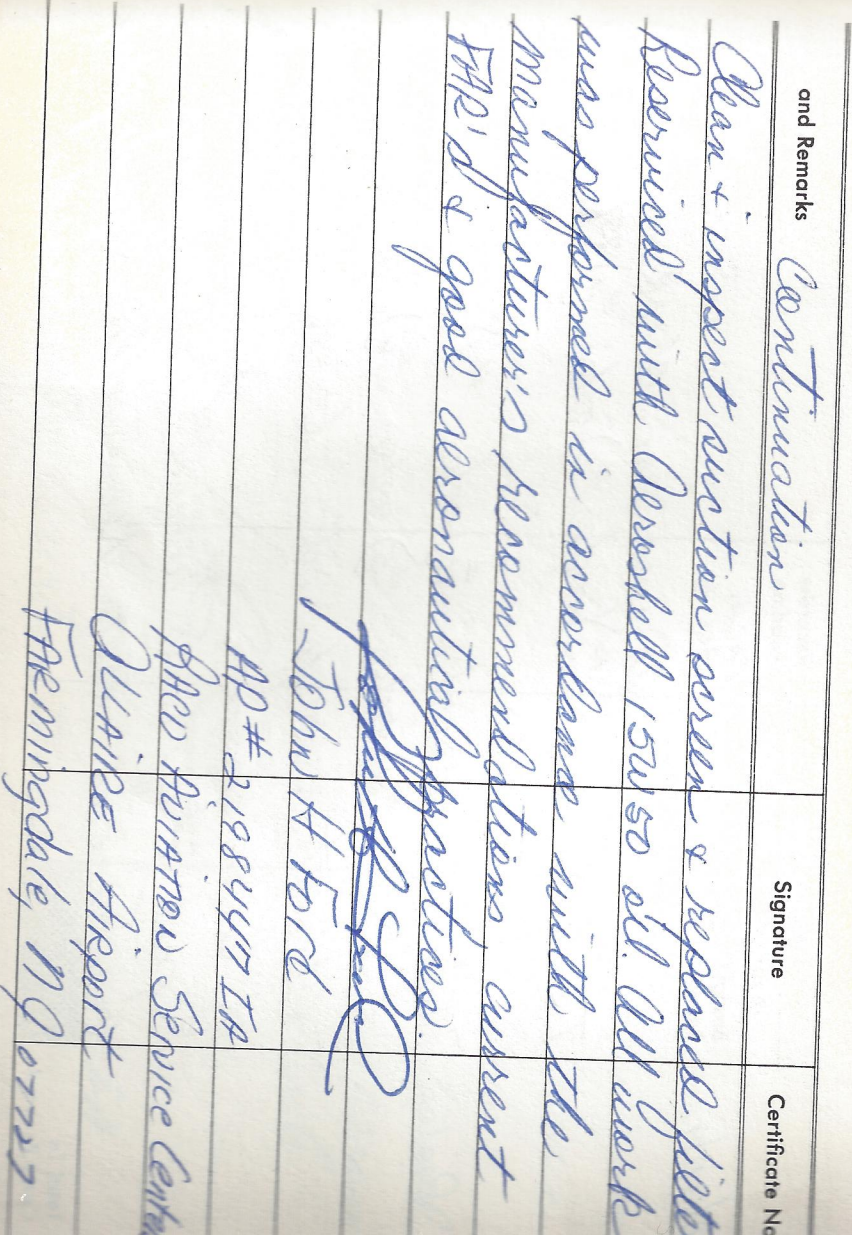 and Remarks Continuation Signature Certificate No
Clean & inspect suction screen & replaced filte
Reserviced with Aeroshell 15W50 oil. All work
was performed in accordance with the
manufacturer's recommendations, current
FAR's & good aeronautical practices.
John H Ford
AP# 2198447 IA
Aviation Service Center
Allaire Airport
Farmingdale, NJ 07727